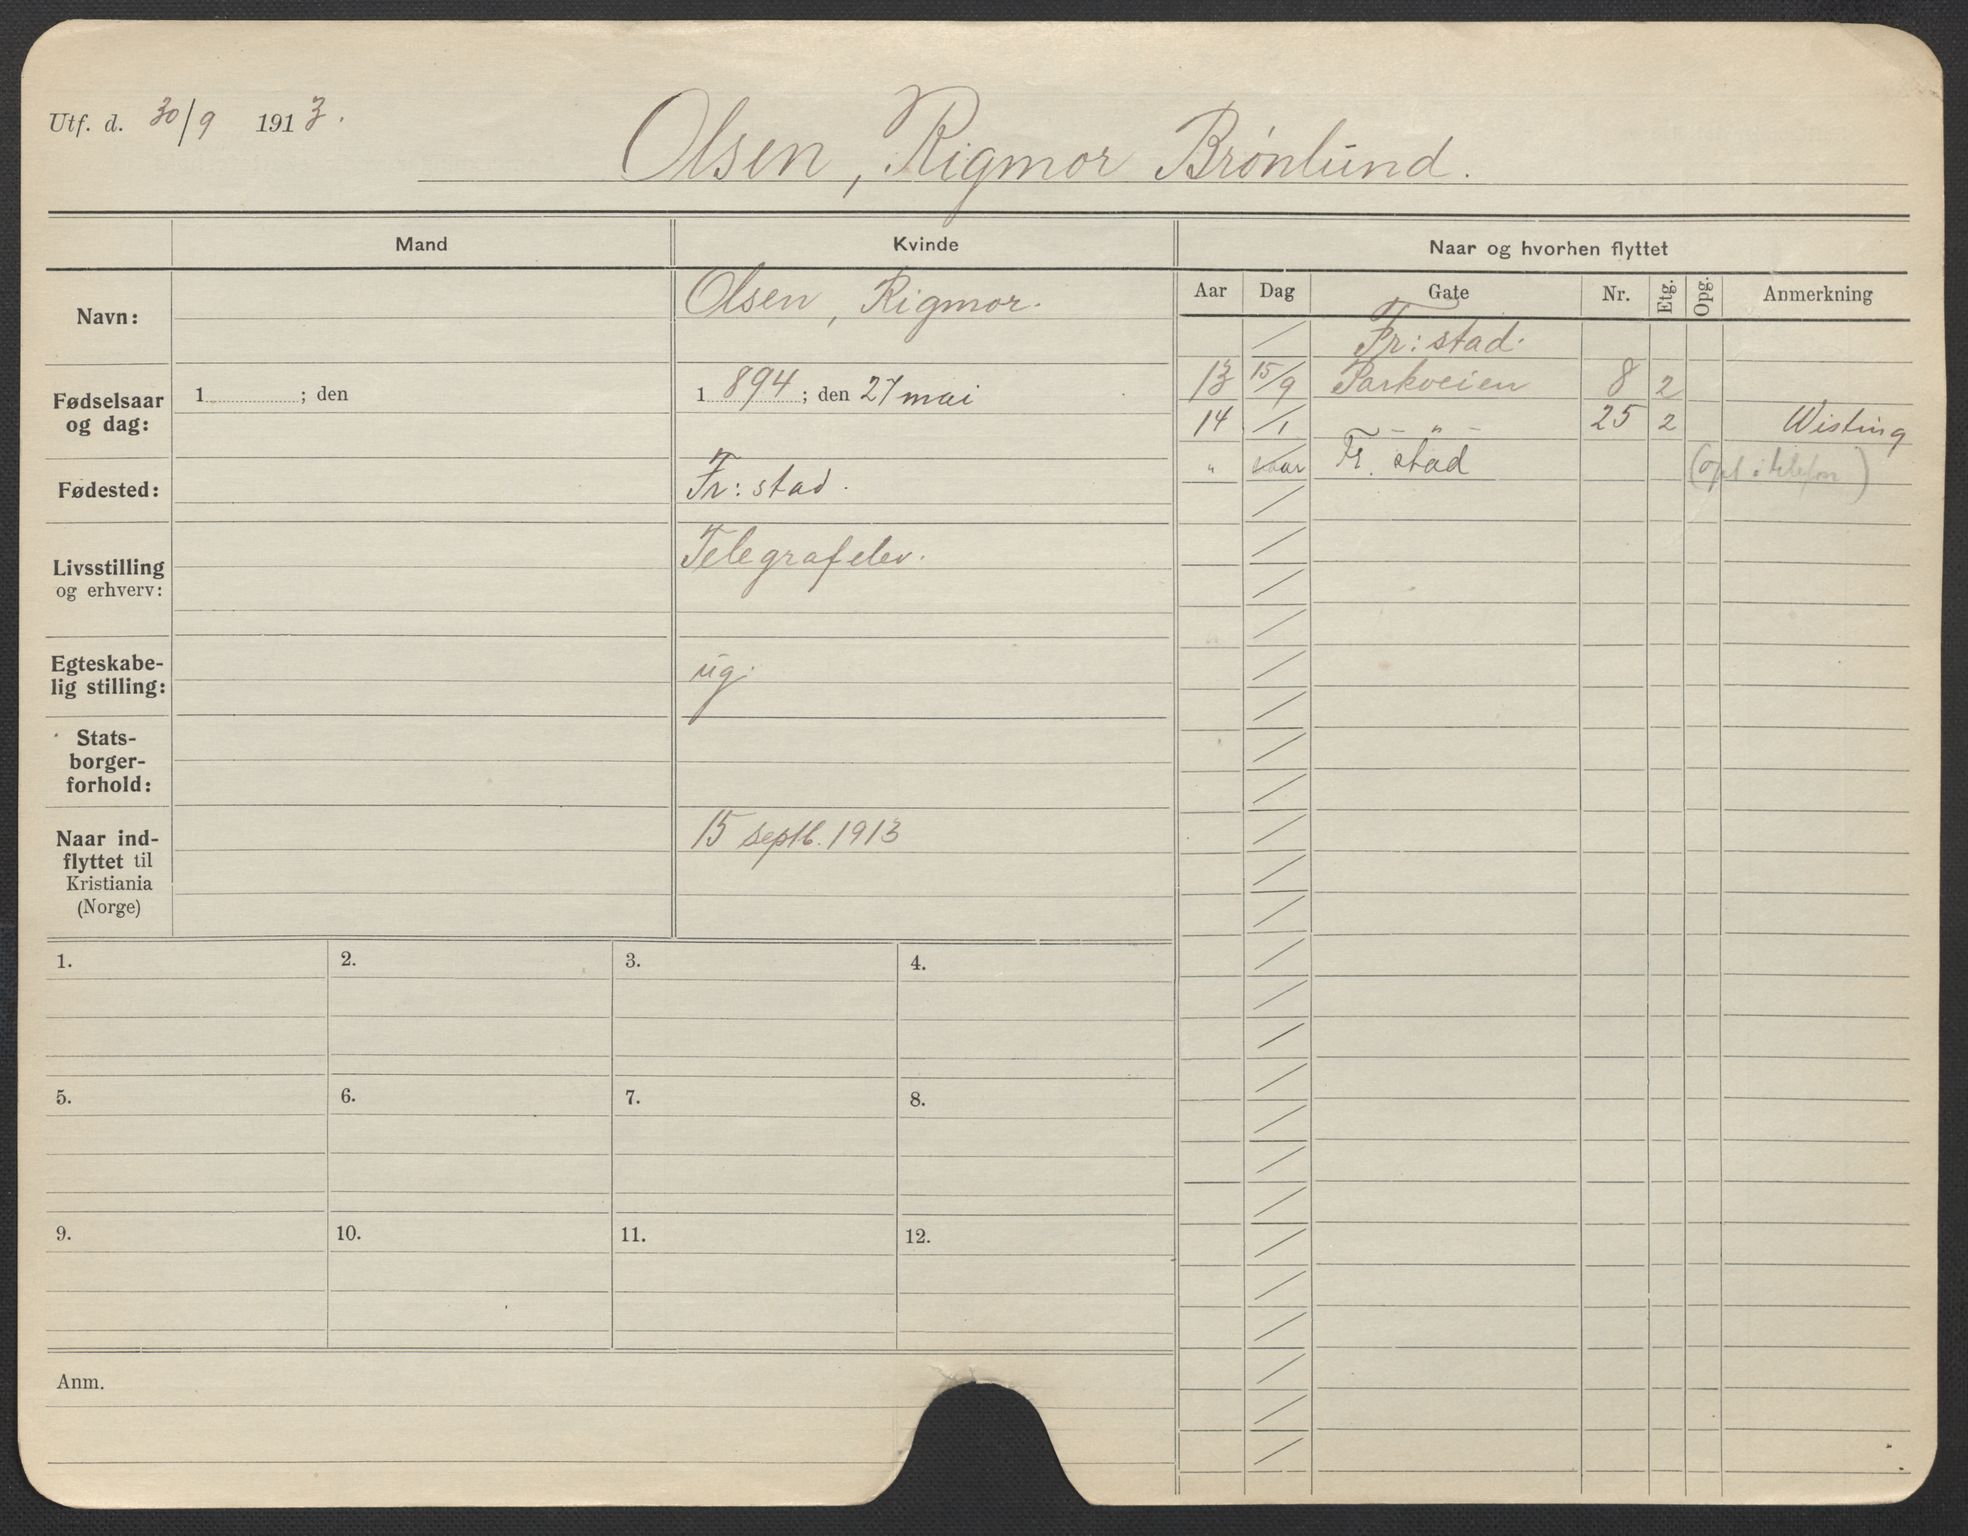 Utf. d. 30/9 1913.
Olsen, Rigmor Brónlund.
Mand
Kvinde
Naar og hvorhen flyttet
Aar Dag Gate Nr. Etg. Opg. Anmerkning
Navn:
Olsen, Rigmor.
Fødselsaar
og dag:
1 ; den
1894 ; den 27 mai
Fødested:
Fr: stad.
Livsstilling
og erhverv:
Telegrafelev.
Egteskabe-
lig stilling:
ug.
Stats-
borger-
forhold:
Naar ind-
flyttet til
Kristiania
(Norge)
15 septb. 1913
/ Fr: stad.
13 15/9 Parkveien 8 2
14 /1 – „ – 25 2 Wisting
„ vaar Fr. stad (opl. i telefon)
1. 2. 3. 4.
5. 6. 7. 8.
9. 10. 11. 12.
Anm.